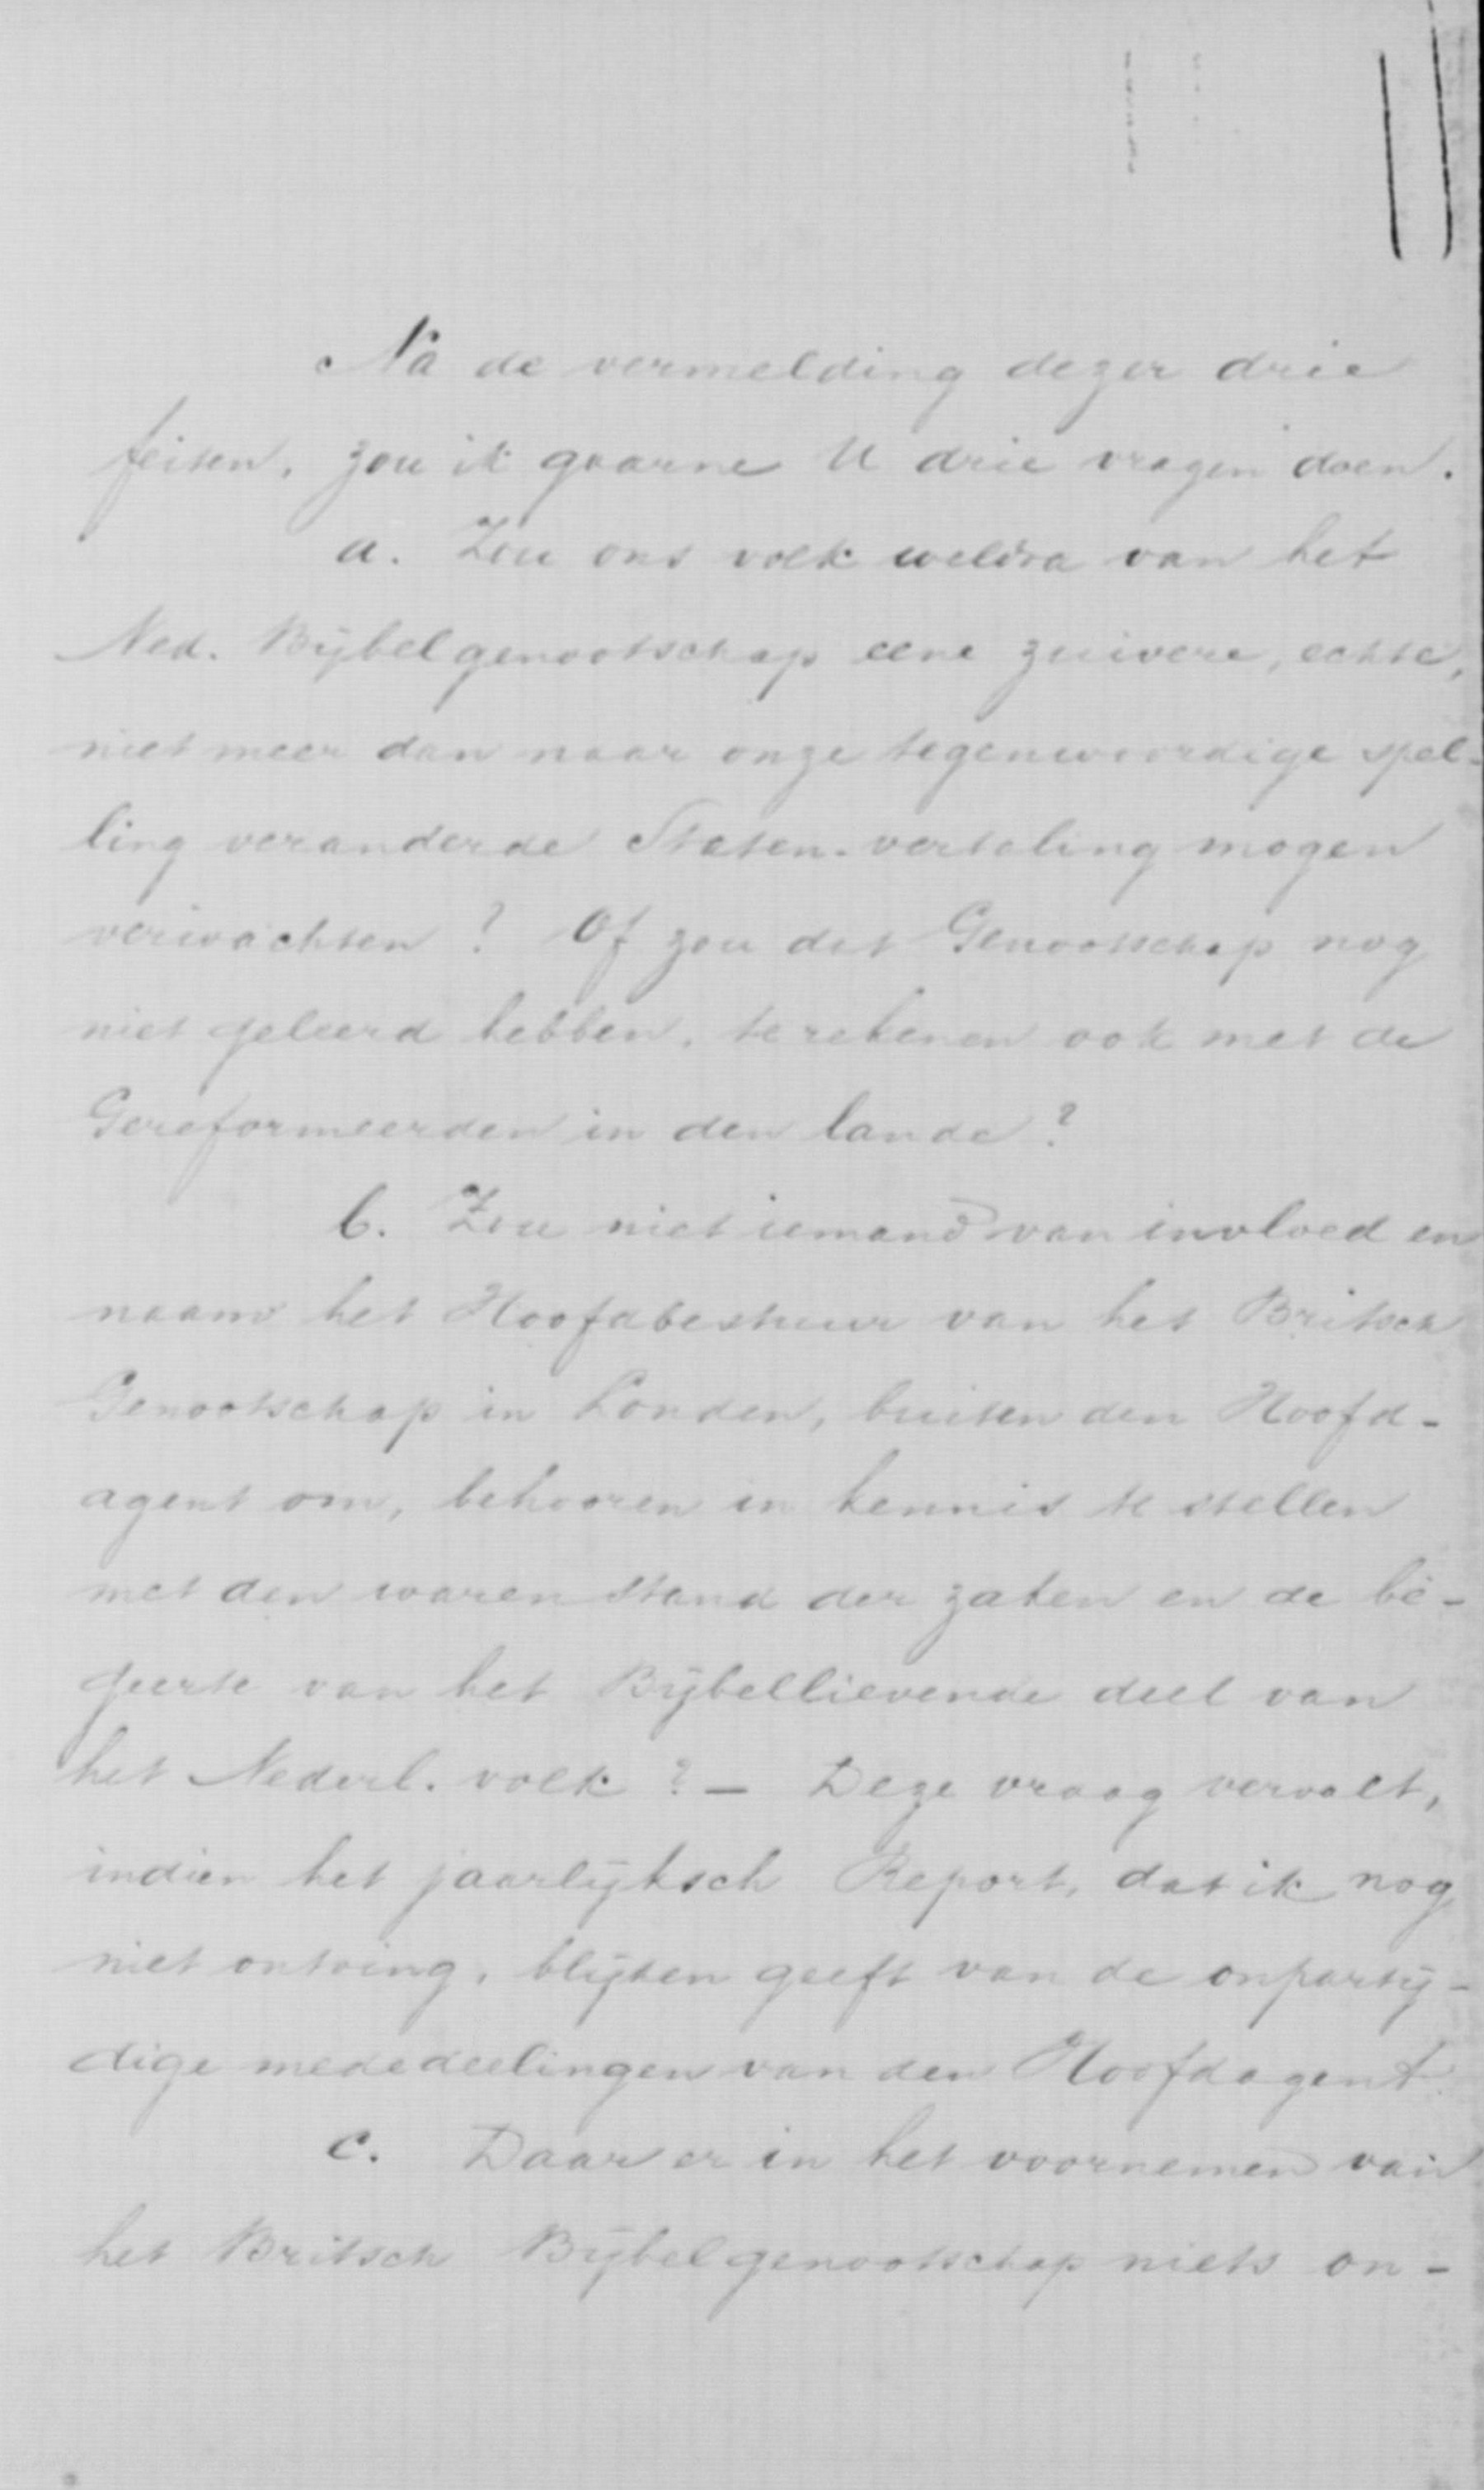 Na de vermelding dezer drie
feiten, zou ik gaarne U drie vragen doen.
a. Zou ons volk weldra van het
Ned. Bijbelgenootschap eene zuivere, echte,
niet meer dan naar onze tegenwoordige spel-
ling veranderde Staten-vertaling mogen
verwachten? Of zou dat Genootschap nog
niet geleerd hebben, te rekenen ook met de
Gereformeerden in den lande?
b. Zou niet iemand van invloed en
naam het Hoofdbestuur van het Britsch
Genootschap in Londen, buiten den Hoofd-
agent om, behooren in kennis te stellen
met den waren stand der zaken en de be-
geerte van het Bijbellievende deel van
het Nederl. volk? — Deze vraag vervalt,
indien het jaarlijksch Report, dat ik nog
niet ontving, blijken geeft van de onpartij-
dige mededeelingen van den Hoofdagent.
c. Daar er in het voornemen van
het Britsch Bijbelgenootschap niets on-